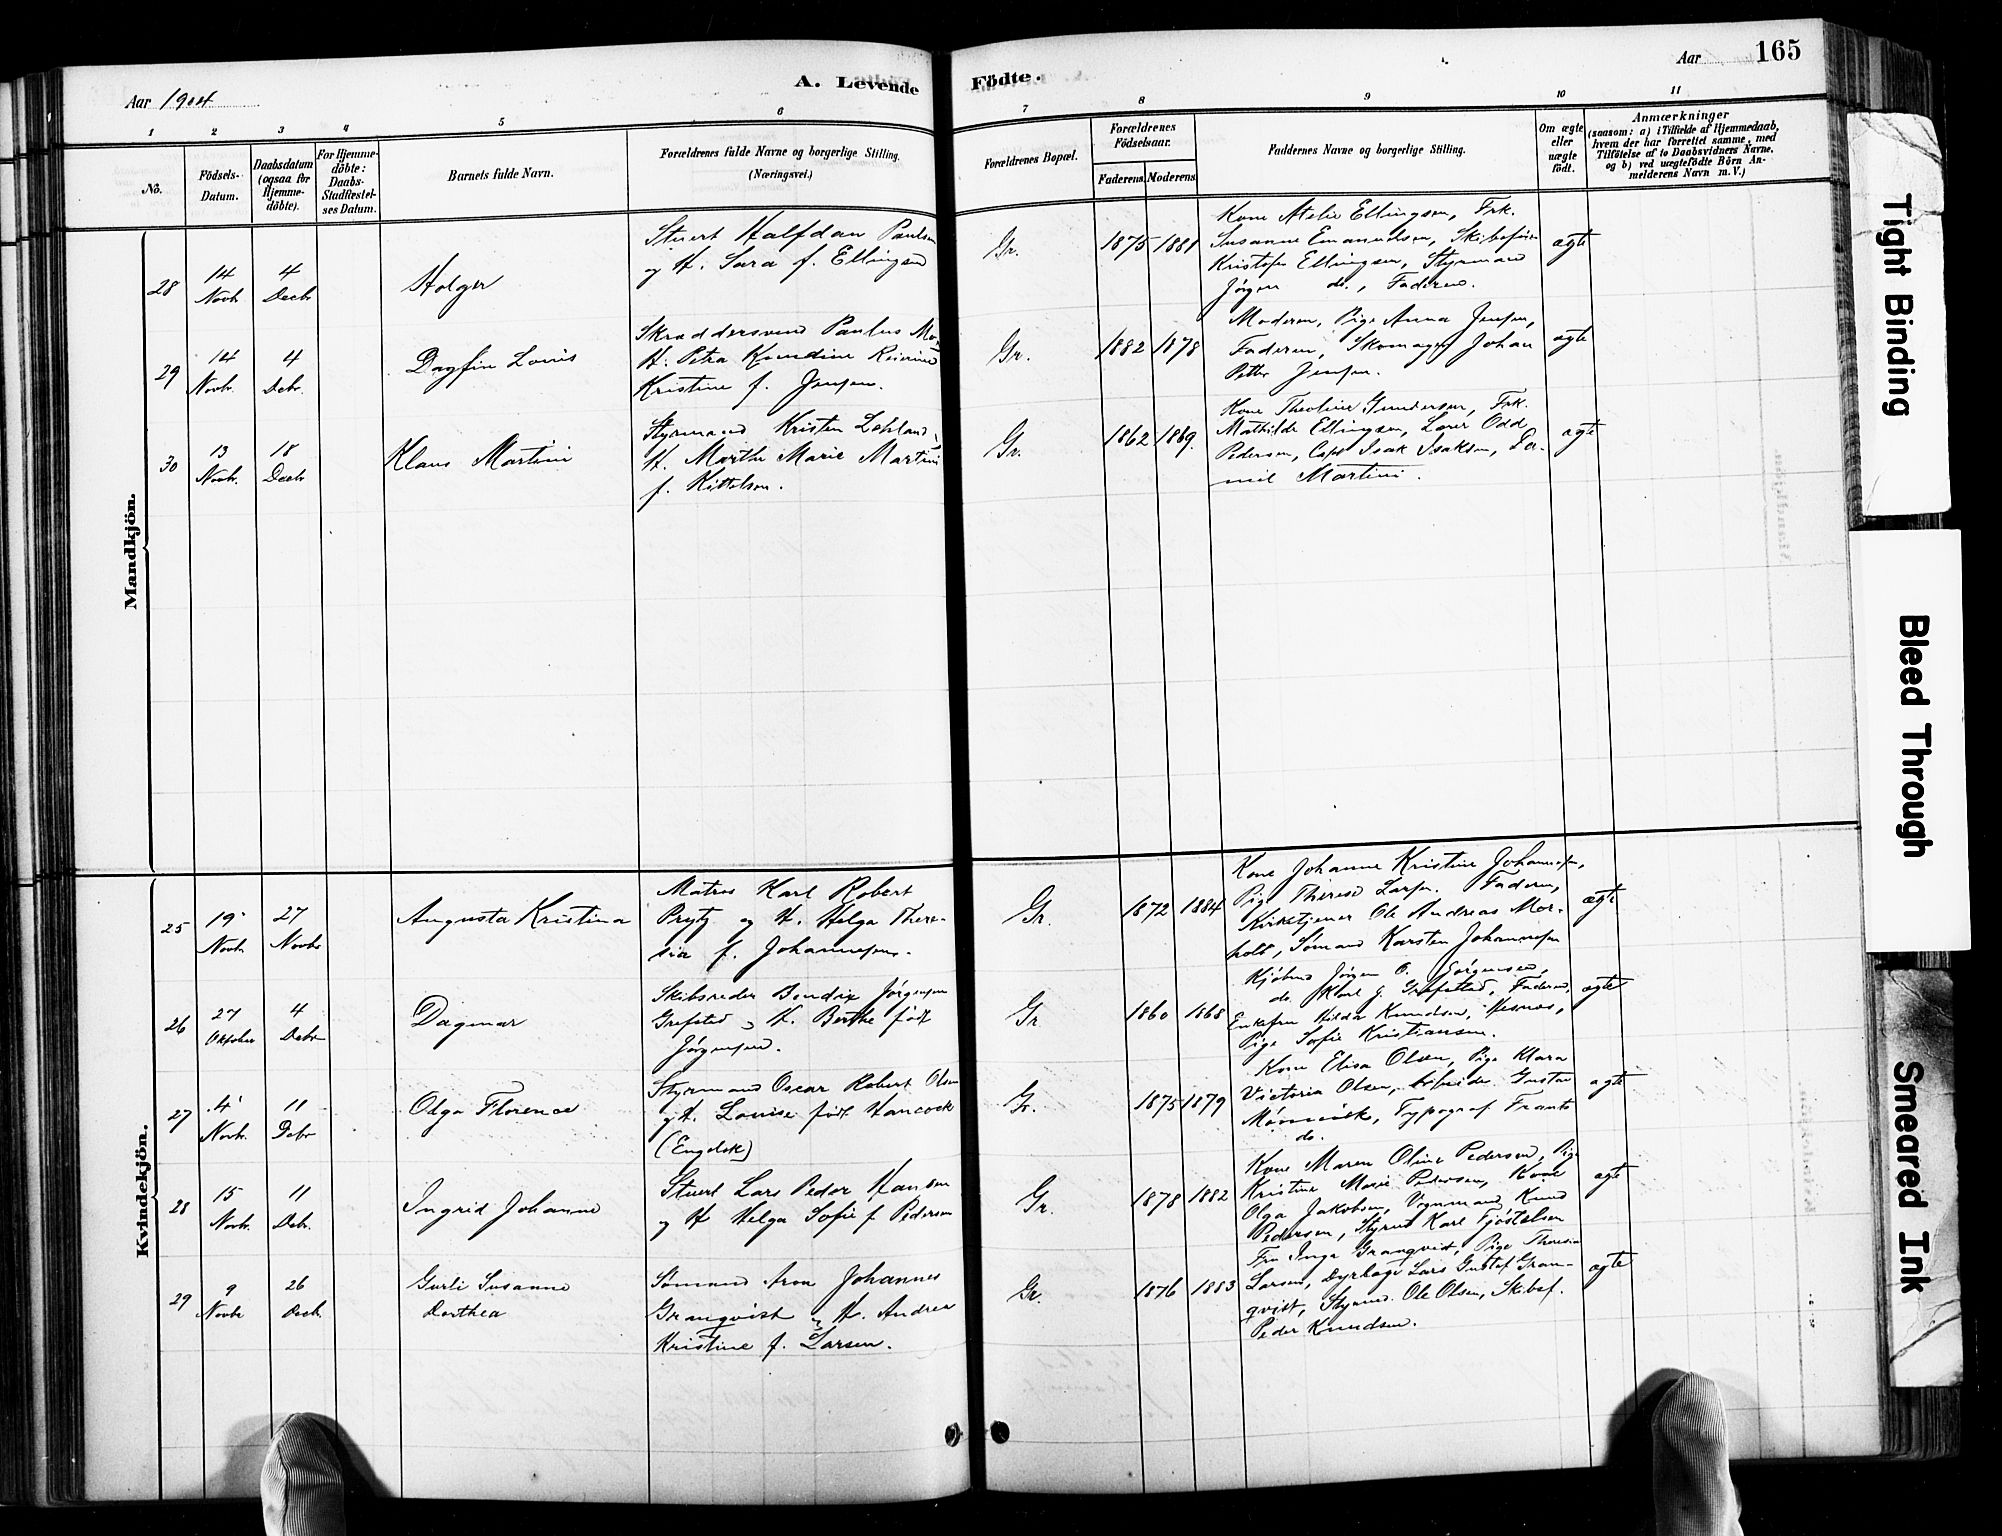 Aar 1904
A. Levende
Födte.
Aar
165
1 2 3 4 5 6 7 8 9 10 11
No.
Födsels-
Datum.
Daabsdatum
(ogsaa for
Hjemme-
döbte).
For Hjemme-
döbte:
Daabs-
Stadfæstel-
ses Datum.
Barnets fulde Navn.
Forældrenes fulde Navne og borgerlige Stilling.
(Næringsvei.)
Forældrenes Bopæl.
Forældrenes
Födselsaar.
Faderens. Moderens.
Faddernes Navne og borgerlige Stilling.
Om ægte
eller
uægte
födt.
Anmærkninger
(saasom: a) i Tilfælde af Hjemmedaab,
hvem der har forrettet samme, med
Tilföielse af to Daabsvidners Navne,
og b) ved uægtefödte Börn An-
melderens Navn m. V.)
Mandkjön.
28
14
Novbr
4
Decbr
Holger
Stuert Halfdan Paulsen
og H. Sara f. Ellingsen
Gr.
1875 1881
Kone Atelie Ellingsen, Frk.
Susanne Emanuelsen, Skibsfører
Kristofer Ellingsen, Styrmand
Jørgen do., Faderen.
ægte
29
14
Novbr.
4
Debr.
Dagfin Louis
Skræddersvend Paulus
H. Petra Kundine
Kristine f. Jensen.
Gr.
1882 1878
Moderen, Pige Anna Jensen,
Faderen, Skomager Johan
Petter Jensen.
ægte
30
13
Novbr.
18
Decbr
Klaus Martini
Styrmand Kristen
H. Marthe Marie Martini
f. Kittelsen.
Gr.
1862 1869.
Kone Theoline Gundersen, Frk.
Mathilde Ellingsen, Lærer Odd
Pedersen, Capt Isak Isaksen, Da-
niel Martini.
ægte
Kvindekjön.
25
19
Novbr.
27
Novbr
Augusta Kristina
Matros Karl Robert
Prytz og H. Helga There-
sia f. Johannesen.
Gr.
1872 1884
Kone Johanne Kristine Johannesen,
Pige Therese Larsen. Faderen,
Kirketjener Ole Andreas Mor-
holt, Sømand Karsten Johannesen
ægte
26
27
Oktober
4
Debr
Dagmar
Skibsreder Bendix Jørgensen
Grefsted og H. Berthe født
Jørgensen.
Gr
1860 1868
Kjøbmd Jørgen P. Jørgensen,
do. Karl J. Grefsted, Faderen,
Enkefru Hilda Knudsen, Hesnes,
Pige Sofie Kristiansen.
ægte
27
4
Novbr.
11
Debr
Olga Florence
Styrmand Oscar Robert Olsen
og H. Louise født Hancock
(Engelsk)
Gr.
1875 1879
Kone Elisa Olsen, Pige Klara
Victoria Olsen, Arbeider Gustav
Mørnvik, Typograf Frants
do.
ægte
28
15
Novbr.
11
Debr.
Ingrid Johanne
Stuert Lars Peder Hansen
og H Helga Sofie f Pedersen
Gr.
1878 1882
Kone Maren Oline Pedersen, Pige
Kristine Marie Pedersen, Kone
Olga Jakobsen, Vognmand Knud
Pedersen, Styrmd Karl Fjøstelsen
ægte
29
9
Novbr
26
Decb.
Gurli Susanne
Dorthea
Sømand Aron Johannes
Granqvist og H. Andrea
Kristine f. Larsen.
Gr.
1876 1883
Fru Inga Granqvist, Pige Theresia
Larsen, Dyrlæge Lars Gustaf Gran-
qvist, Styrmd. Ole Olsen, Skibsf.
Peder Knudsen.
ægte
Tight Binding
Bleed Through
Smeared Ink